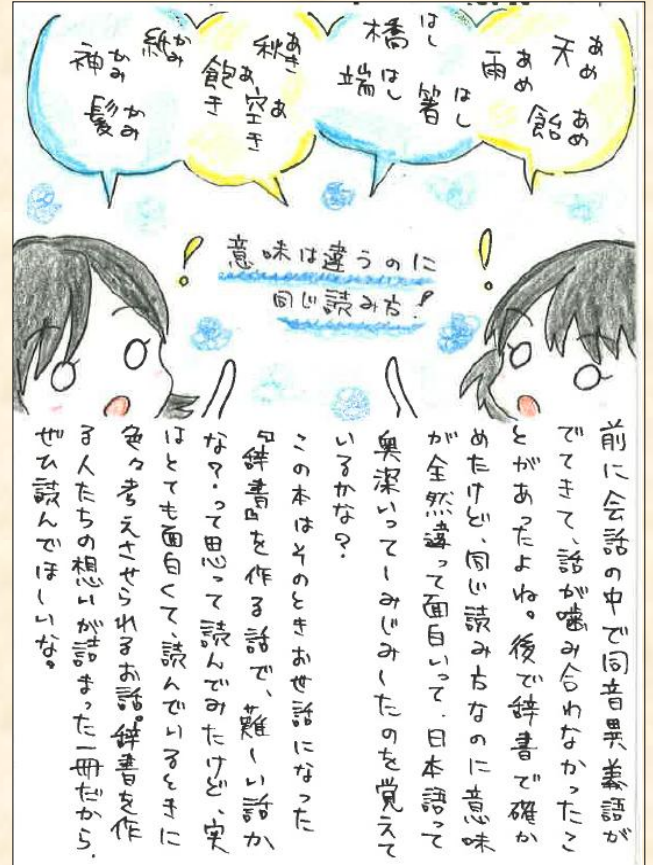 天あめ
雨あめ
飴あめ
橋はし
端はし
箸はし
秋あき
飽あき
空あき
紙かみ
神かみ
髪かみ
意味は違うのに
同じ読み方!
前に会話の中で同音異義語が
でてきて、話が噛み合わなかったこ
とがあったよね。後で辞書で確か
めたけど、同じ読み方なのに意味
が全然違って面白いって、日本語って
奥深いってしみじみしたのを覚えて
いるかな?
この本はそのときお世話になった
『辞書』を作る話で、難しい話か
な?って思って読んでみたけど、実
はとても面白くて、読んでいるときに
色々考えさせられるお話。辞書を作
る人たちの想いが詰まった一冊だから、
ぜひ読んでほしいな。